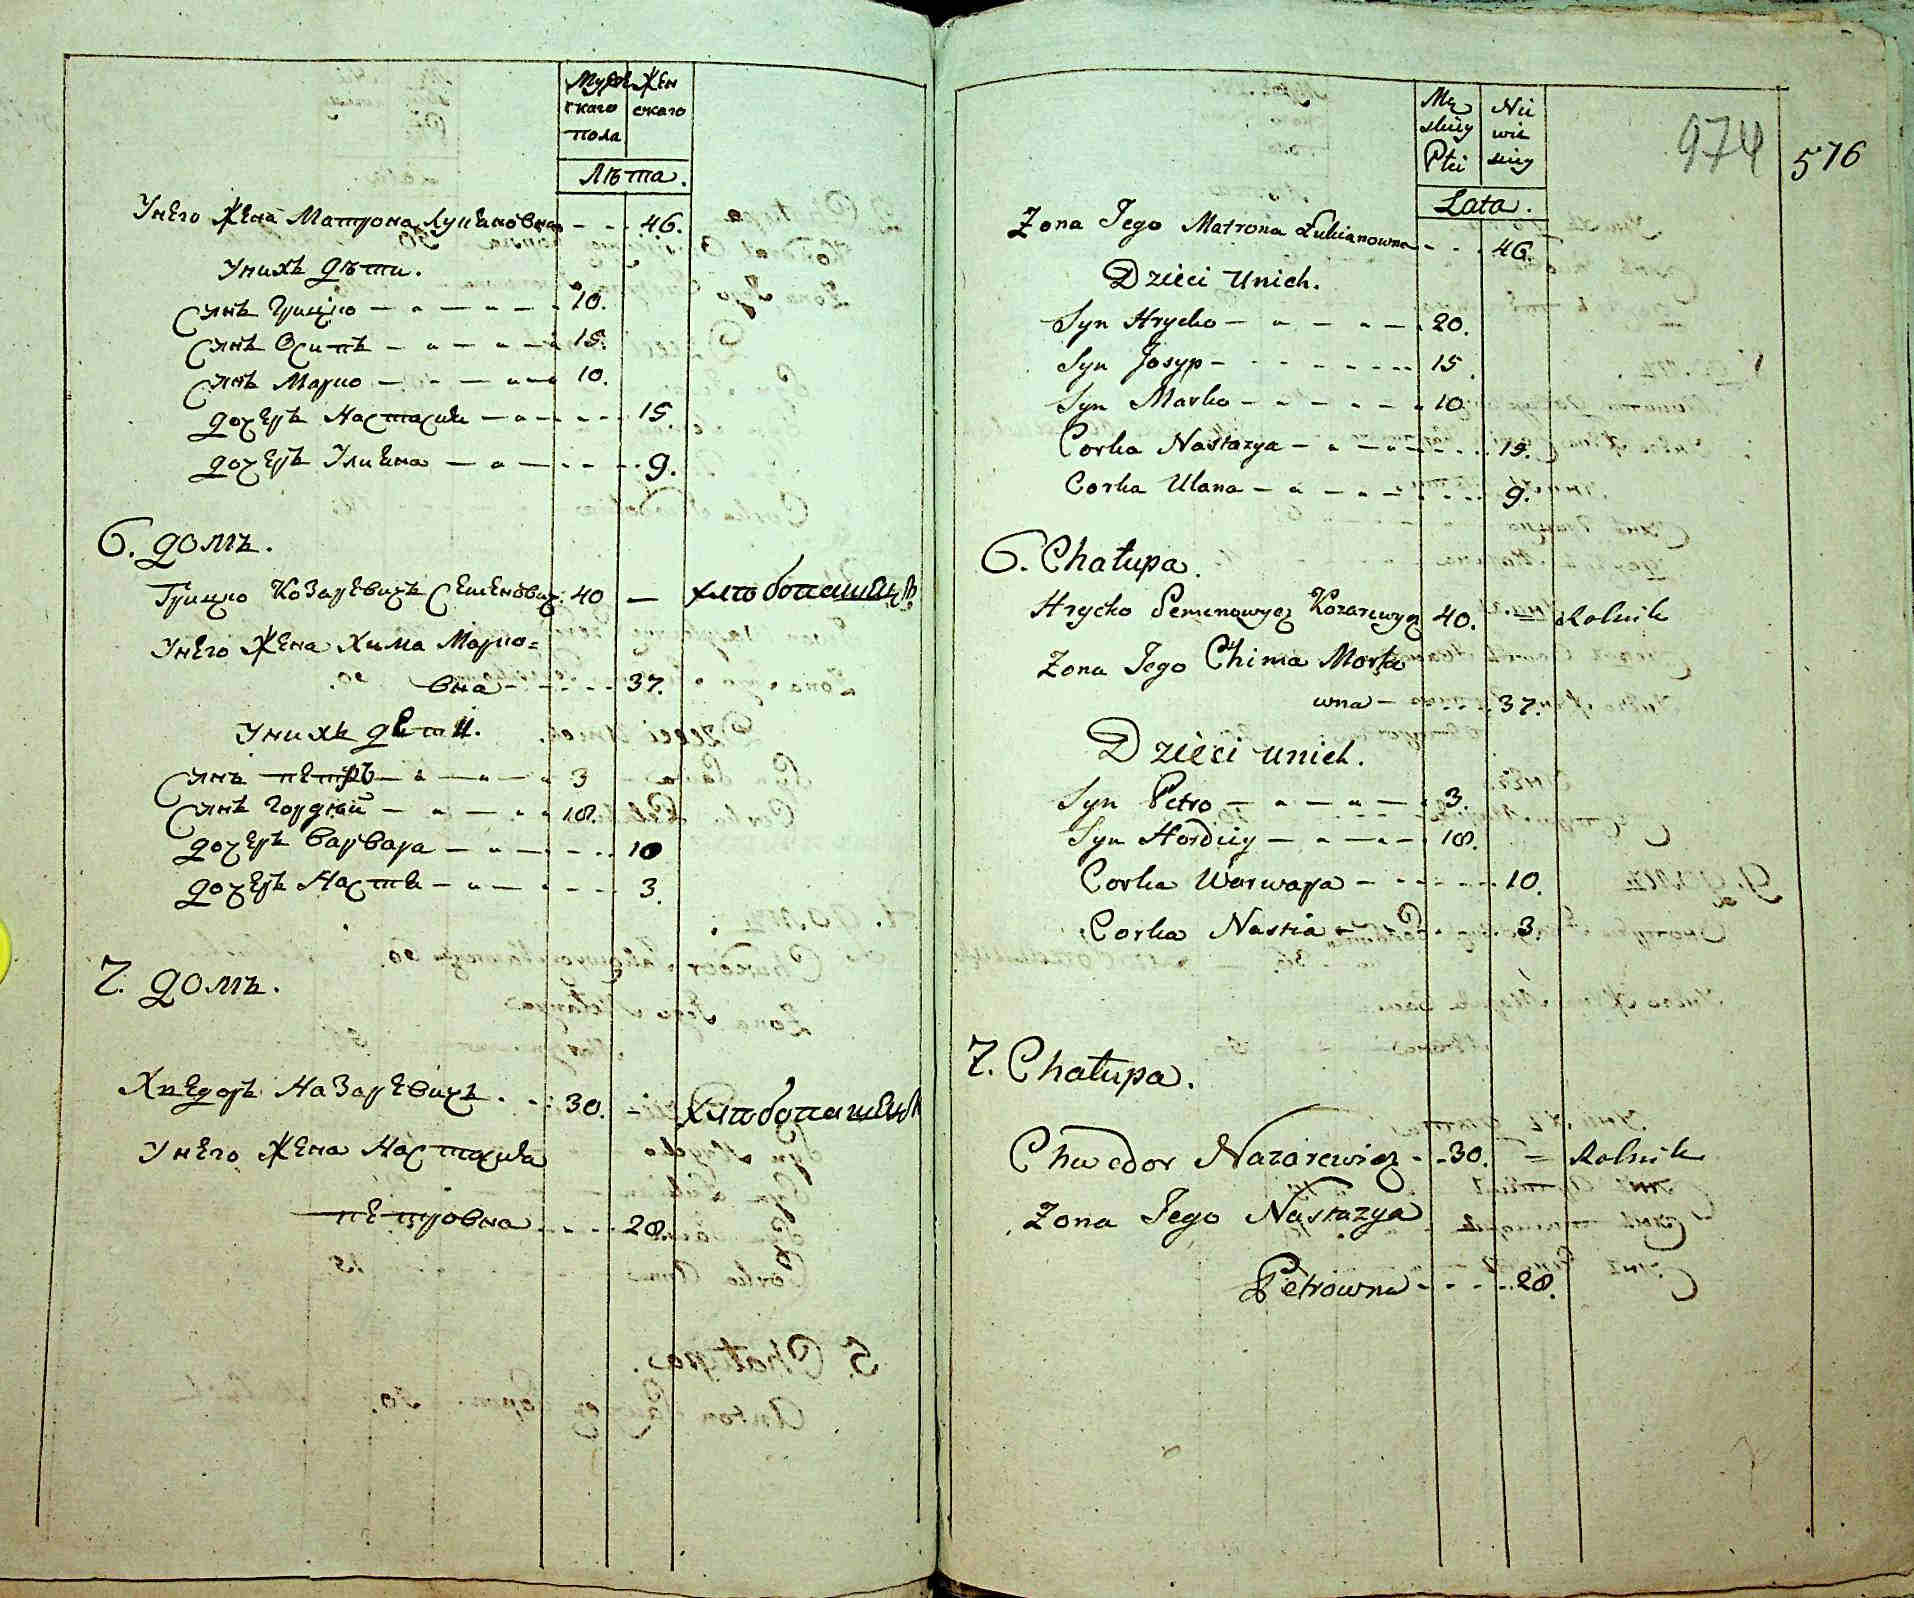 Муже Жен
скаго скаго
пола
Лѣта.
Унего Жена Матрона Лукиановна - - - 46.
Унихъ дѣти.
Сынъ Грицко - - - - 10.
Сынъ Осипъ - - - - 15.
Сынъ Марко - - - - 10.
дочеръ Настасия - - - - 15.
дочеръ Улиана - - - - 9.
6. домъ.
Грицко Козаревичъ Семеновичъ 40 — хлѣбопашецъ
Унего Жена Хима Марко=
вна - - - - 37.
Унихъ дети.
Сынъ петръ - - - - 3
Сынъ Гордѣй - - - - 18.
дочеръ Варвара - - - - 10
дочеръ Настя - - - - 3.
7. домъ.
Хведоръ Назаревичъ. - - 30. - хлѣбопашецъ
Унего Жена Настасия
петровна - - - - 28.
974
576
Mę Nie
skiey wie
Płci skiey
Lata.
Zona Jego Matrona Łukianowna - - - 46.
Dzieci Unich.
Syn Hrycko - - - - 20.
Syn Josyp - - - - 15.
Syn Marko - - - - 10
Corka Nastazya - - - - 15.
Corka Ulana - - - - 9.
6. Chałupa.
Hrycko Semenowycz Kozarewycz 40. = Rolnik
Zona Jego Chima Marka
wna - - - - 37.
Dzieci unich.
Syn Petro - - - - 3.
Syn Hordiey - - - - 18.
Corka Warwara - - - - 10.
Corka Nastia - - - - 3.
7. Chałupa.
Chwedor Nazarewicz - - 30. = Rolnik
Zona Jego Nastazya
Petrowna - - - - 28.